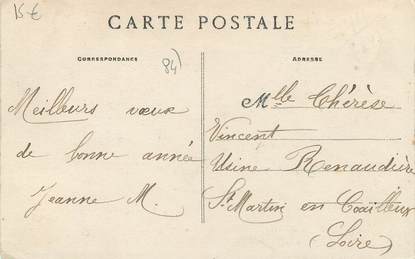 15€
CARTE POSTALE
CORRESPONDANCE
84)
ADRESSE
Meilleurs vœux
de bonne année
Jeanne M.
Mlle Thérèse
Vincent
Usine Renaudière
St Martin en Coailleux
(Loire)